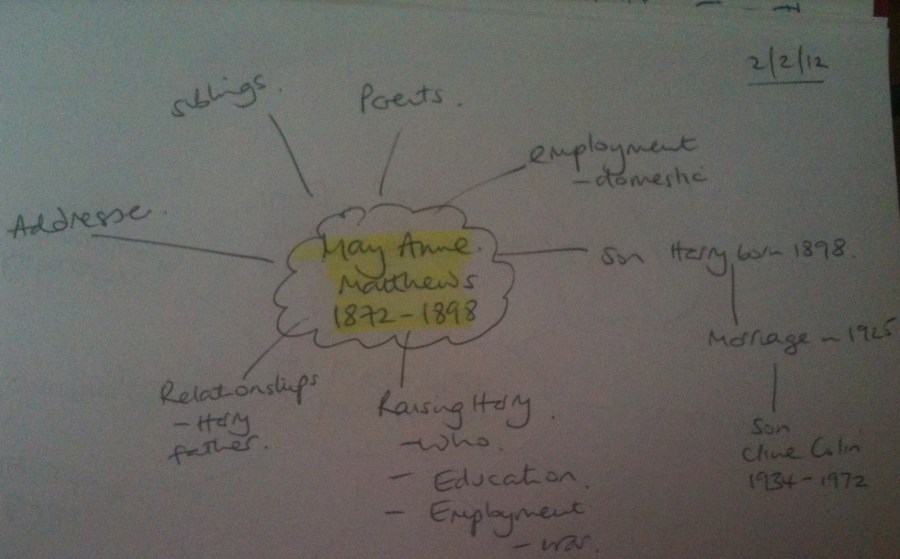 2/2/12
siblings.
Parents.
employment
- domestic
Addresse.
May Anne.
Matthews
1872 - 1898
Son Harry born 1898.
Marriage - 1925
Son
Clive Colin
1934 - 1972
Relationships
- Harry
father.
Raising Harry.
- who.
- Education.
- Employment
- war.